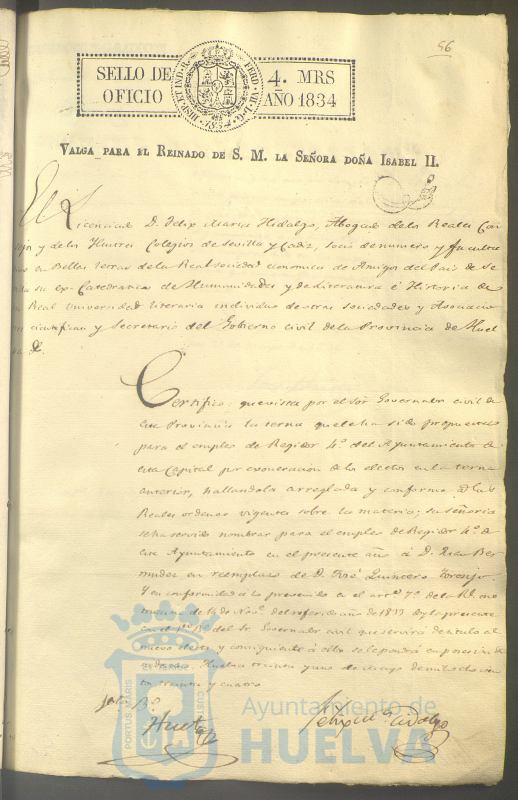 56
SELLO DE OFICIO
4. MRS AÑO 1834
HISPAN. ET IND. R. FERD. VII. D. G. 1834
VALGA PARA EL REINADO DE S. M. LA SEÑORA DOÑA ISABEL II.
El Licenciado D. Felix Maria Hidalgo, Abogado de los Reales Con
y de los Ilustres Colegios de Sevilla y Cadiz, socio de numero y
en Bellas letras de la Real sociedad economica de Amigos del Pais de Se
su ex-Catedratico de Humanidades y de Literatura é Historia de
Real Universidad literaria individuo de otras sociedades y Asociacio
cientificas y Secretario del Gobierno civil de la Provincia de Huel
va &.
Certifico: que vista por el Sor Governador civil de
esta Provincia la terna que le ha sido propuesta
para el empleo de Regidor 4.º del Ayuntamiento de
esta Capital por exoneracion de los electos en la terna
anterior, hallandola arreglada y conforme á las
Reales ordenes vigentes sobre la materia; su señoria
se ha servido nombrar para el empleo de Regidor 4.º de
este Ayuntamiento en el presente año á D. Ber
mudez en reemplazo de D. José Quintero Toronjo.
Y en conformidad á lo prevenido en el artº 7º de la Rl. orn
de 14 de Novᵉ del referido año de 1833 doy la presente
con el Vº Bº del Sr Governador civil que servirá de titulo al
nuevo electo y consiguiente á ello se le pondrá en posesion de
Huelva treinta y uno de Mayo de mil ochocien
tos treinta y cuatro
Vto Bº
Huet
Felix Mª Hidalgo
PORTUS MARIS
CUSTODIA
Ayuntamiento de
HUELVA